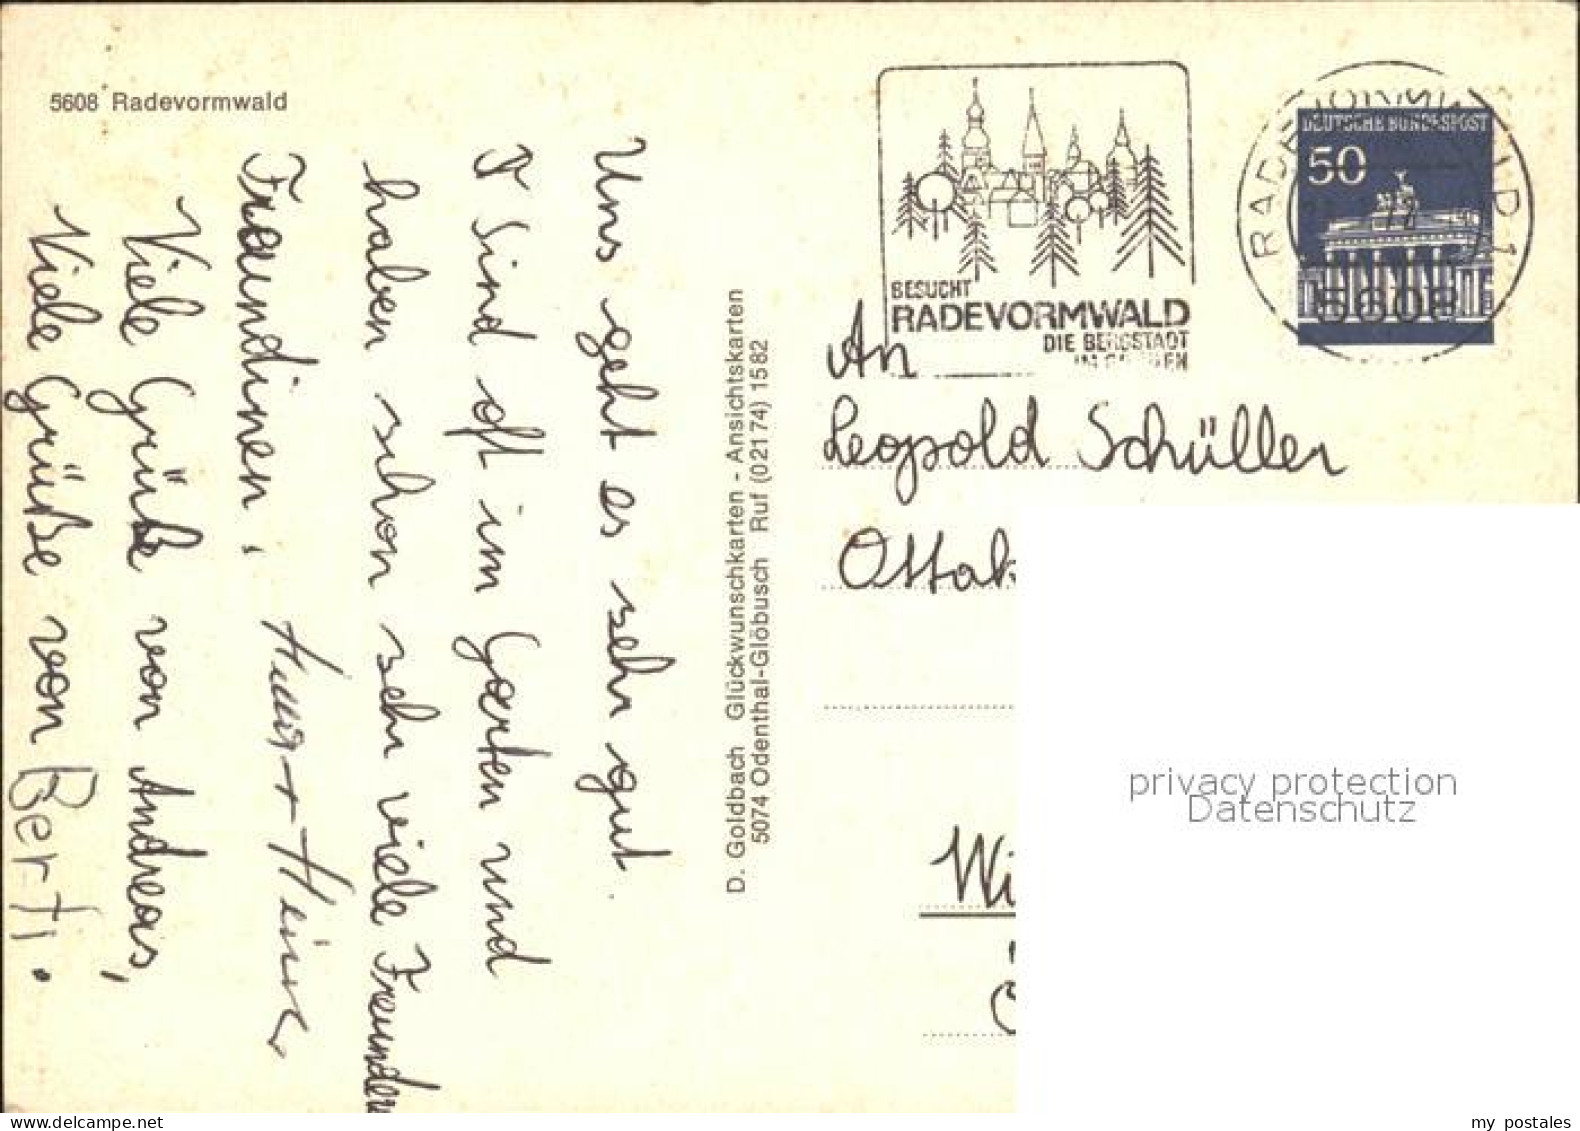 5608 Radevormwald
Uns geht es sehr gut.
Sind oft im Garten und
haben schon sehr viele Freunde
Freundinen.
Viele Grüße von Andreas,
Viele Grüße von Berti.
D. Goldbach Glückwunschkarten - Ansichtskarten
5074 Odenthal-Glöbusch Ruf (02174) 1582
BESUCHT
RADEVORMWALD
DIE BERGSTADT
RADEVORMWALD 1
5608
DEUTSCHE BUNDESPOST
50
An
Leopold Schüller
Ottak
Wi
privacy protection
Datenschutz
www.delcampe.net
my postales